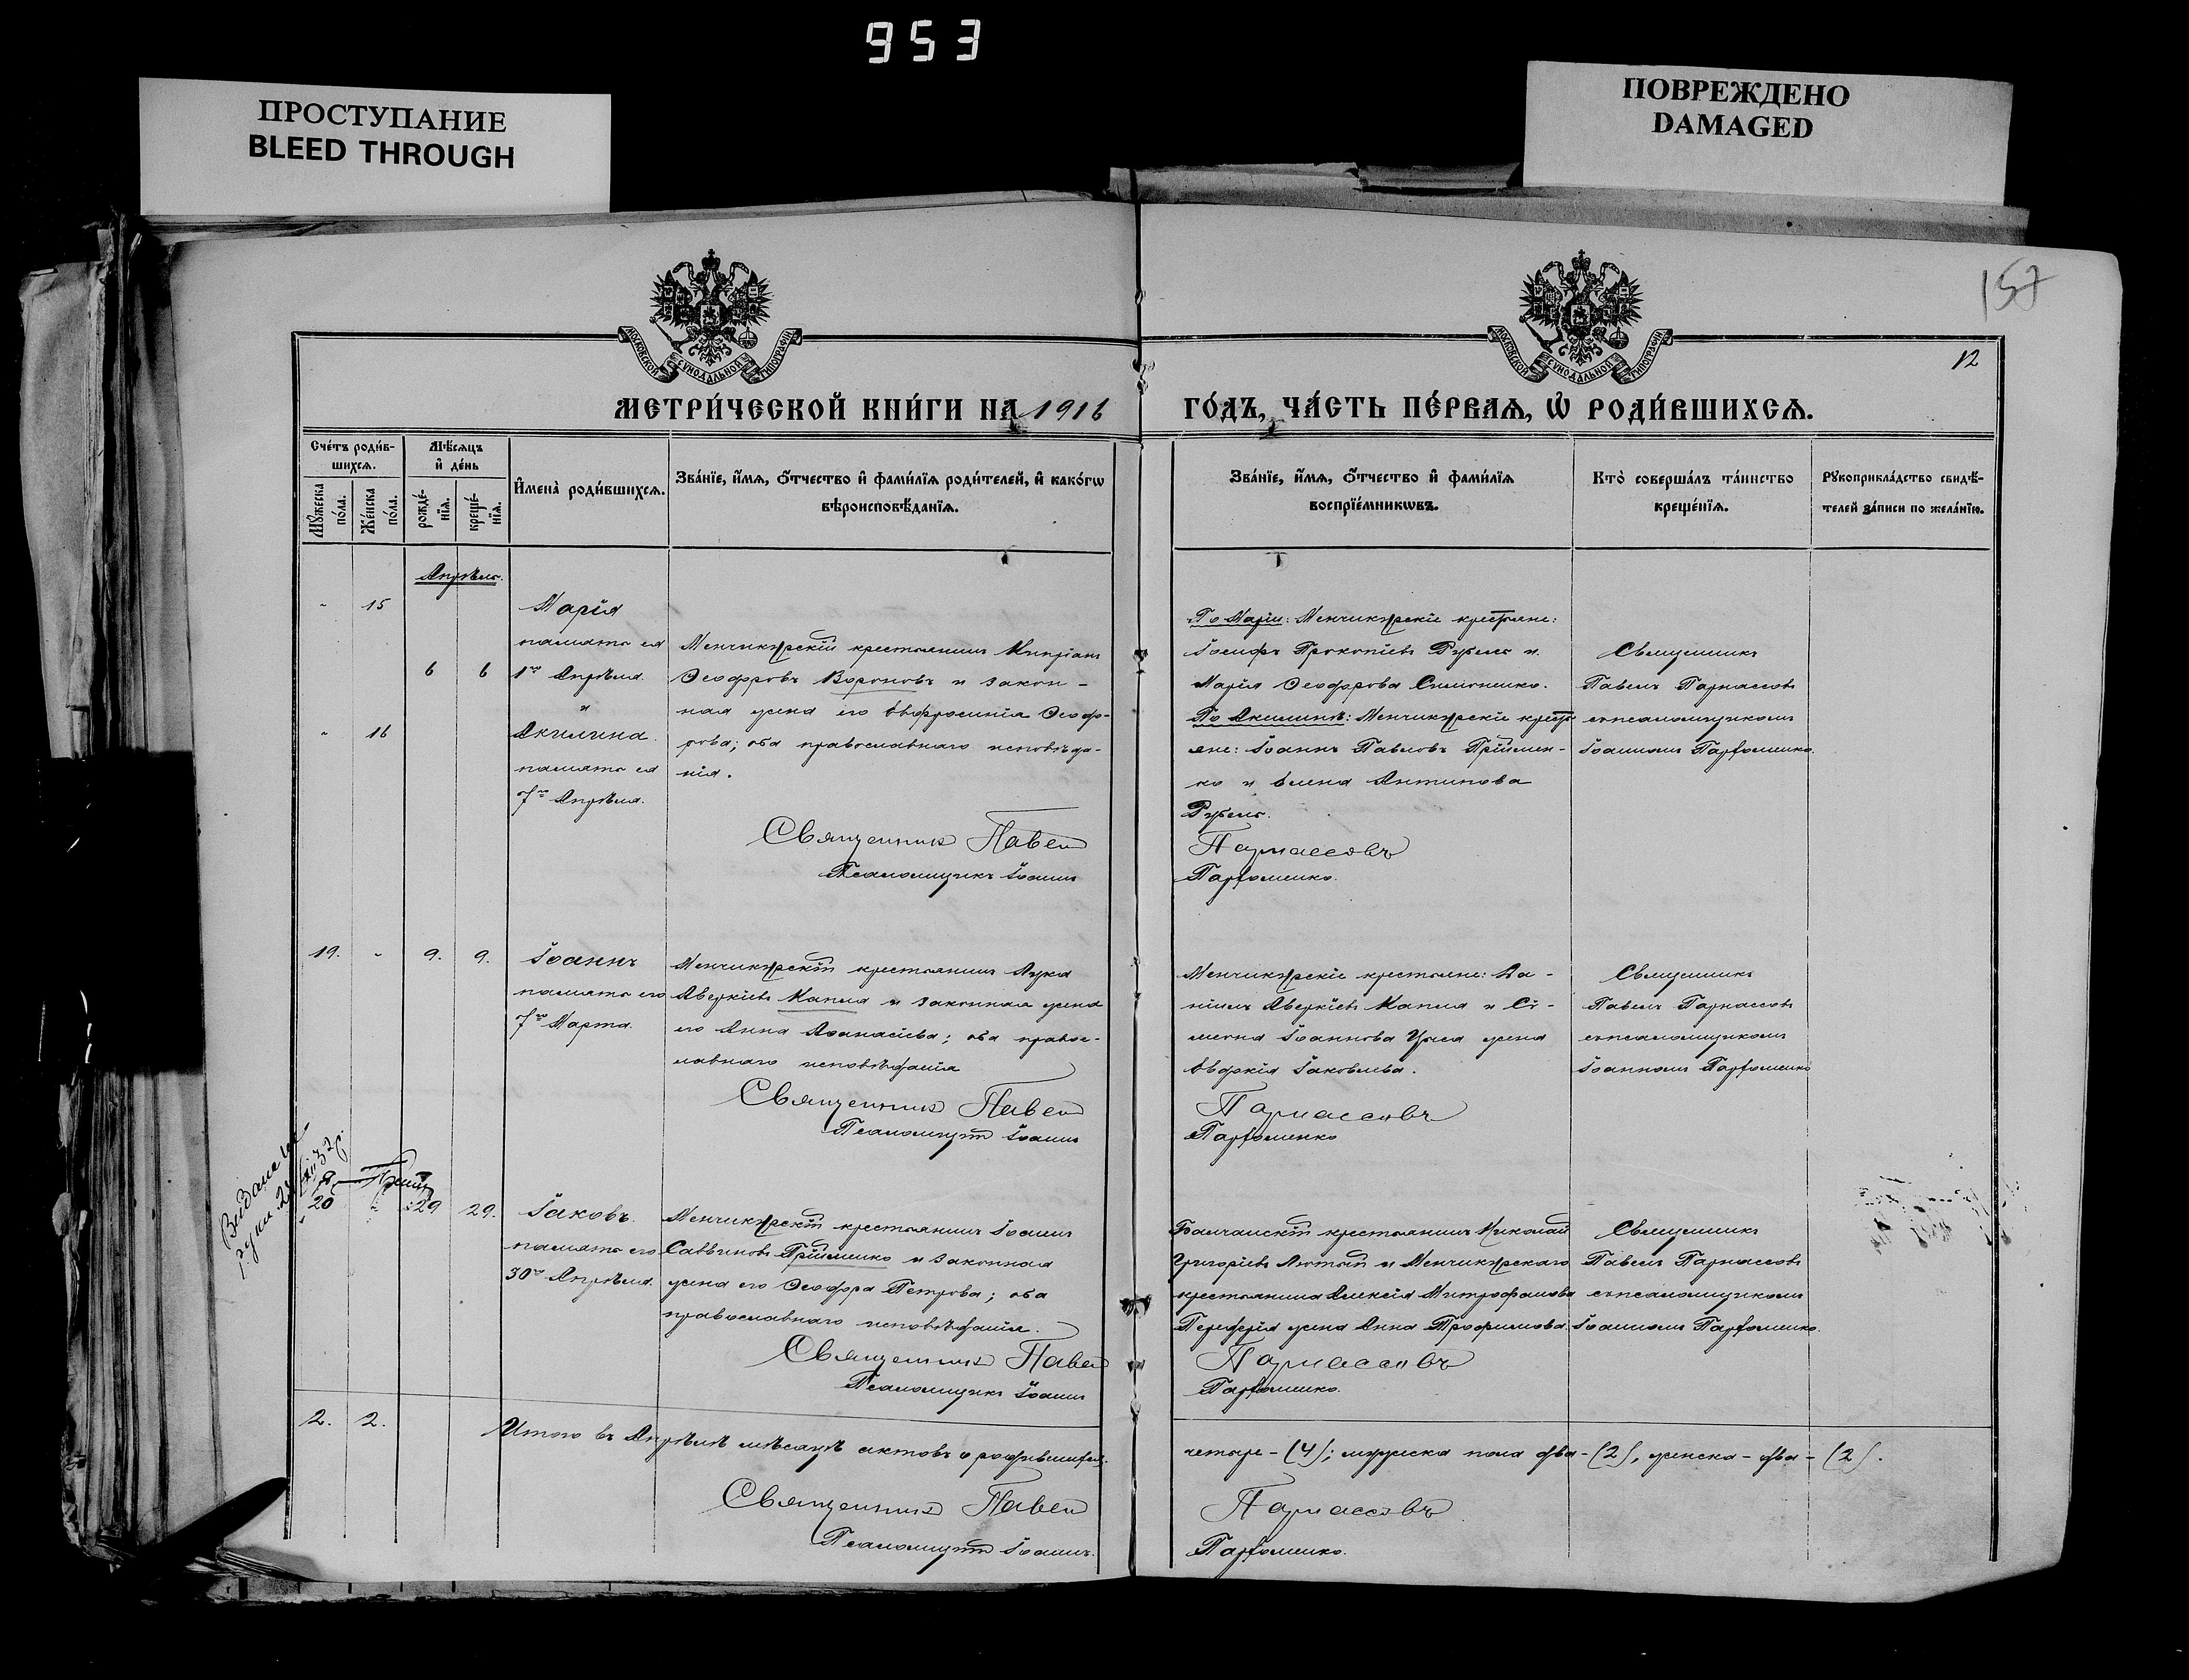 953
ПРОСТУПАНИЕ
BLEED THROUGH
ПОВРЕЖДЕНО
DAMAGED
157
12
МОСКОВСКОЙ СѴНОДАЛЬНОЙ ТИПОГРАФІИ
МОСКОВСКОЙ СѴНОДАЛЬНОЙ ТИПОГРАФІИ
МЕТРИ́ЧЕСКОЙ КНИ́ГИ НА 1916 ГО́ДЪ, ЧА́СТЬ ПЕ́РВАѦ, Ѡ҆ РОДИ́ВШИХСѦ.
Сче́тъ роди́в-
шихсѧ.
Мѣ́сѧцъ
и҆ де́нь
Мꙋ́жеска
по́ла.
Же́нска
по́ла.
рожде́-
нїѧ.
креще́-
нїѧ.
И҆мена̀ роди́вшихсѧ.
Зва́нїе, и҆́мѧ, ѻ҆́тчество и҆ фами́лїѧ роди́телей, и҆ како́гѡ
вѣроисповѣ́данїѧ.
Зва́нїе, и҆́мѧ, ѻ҆́тчество и҆ фами́лїѧ
воспрїе́мникѡвъ.
Кто̀ соверша́лъ та́инство
креще́нїѧ.
Рꙋкоприкла́дство свидѣ́-
телей за́писи по жела́нїю.
Апрѣль.
15
Марія
память ея
6 6
1го Апрѣля.
и
16
Акилина.
память ея
7го Апрѣля.
Менчикурскій крестьянинъ Кипріанъ
Ѳеодоровъ Вороновъ и закон-
ная жена его Евфросинія Ѳеодо-
рова; оба православнаго исповѣда-
нія.
Священникъ Павелъ
Псаломщикъ Іоаннъ
По Маріи: Менчикурскіе крестьяне:
Іосифъ Прокопіевъ Рубель и
Марія Ѳеодорова Симоненко.
По Акилинѣ: Менчикурскіе кресть
яне: Іоаннъ Павловъ Пріймен-
ко и Елена Антипова
Рубель.
Парнассовъ
Парфоменко.
Священникъ
Павелъ Парнассовъ
съ псаломщикомъ
Іоанномъ Парфоменко.
19. - 9. 9.
Іоаннъ
память его
7го Марта.
Менчикурскій крестьянинъ Лука
Аверкіевъ Капля и законная жена
его Анна Аѳанасіева; оба правос-
лавнаго исповѣданія
Священникъ Павелъ
Псаломщикъ Іоаннъ
Менчикурскіе крестьяне: Да-
ніилъ Аверкіевъ Капля и Сі-
меона Іоаннова жена
Евдокія Іаковлева.
Парнассовъ
Парфоменко
Священникъ
Павелъ Парнассовъ
съ псаломщикомъ
Іоанномъ Парфоменко
20 29 29.
Іаковъ.
память его
30го Апрѣля.
Менчикурскій крестьянинъ Іоаннъ
Саввиновъ Прійменко и законная
жена его Ѳеодора Петрова; оба
православнаго исповѣданія.
Священникъ Павелъ
Псаломщикъ Іоаннъ
крестьянинъ Николай
Григоріевъ Лютый и Менчикурскаго
крестьянина Алексія Митрофанова
жена Анна Трофимова.
Парнассовъ
Парфоменко.
Священникъ
Павелъ Парнассовъ
съ псаломщикомъ
Іоанномъ Парфоменко.
2. 2.
Итого въ Апрѣлѣ мѣсяцѣ актовъ о родившихся
четыре - (4); мужеска пола два - (2), женска - два - (2).
Священникъ Павелъ Парнассовъ
Псаломщикъ Іоаннъ Парфоменко.